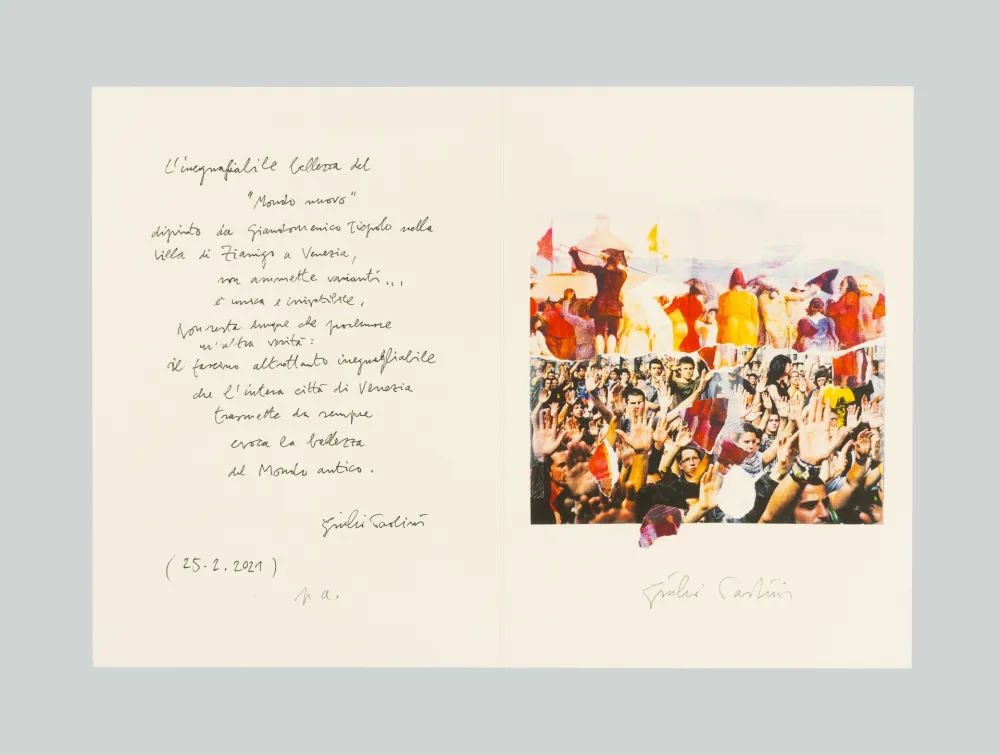 L'ineguagliabile bellezza del
"Mondo nuovo"
dipinto da Giandomenico Tiepolo nella
villa di Zianigo a Venezia,
non ammette varianti...
è unica e irripetibile,
Non resta dunque che proclamare
un'altra verità:
il fascino altrettanto ineguagliabile
che l'intera città di Venezia
trasmette da sempre
evoca la bellezza
del Mondo antico.
Giulio Paolini
(25.2.2021)
p.a.
Giulio Paolini